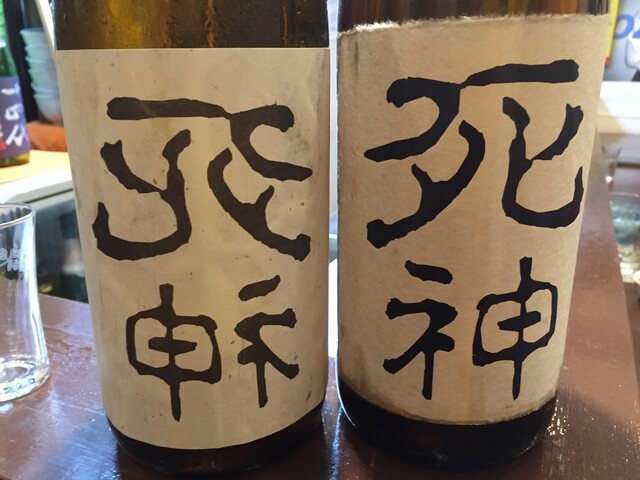 死
神
死
神